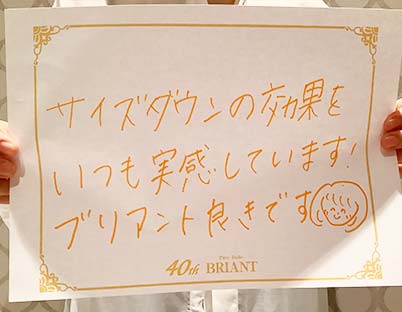 サイズダウンの効果を
いつも実感しています!
ブリアント良きです
40th BRIANT